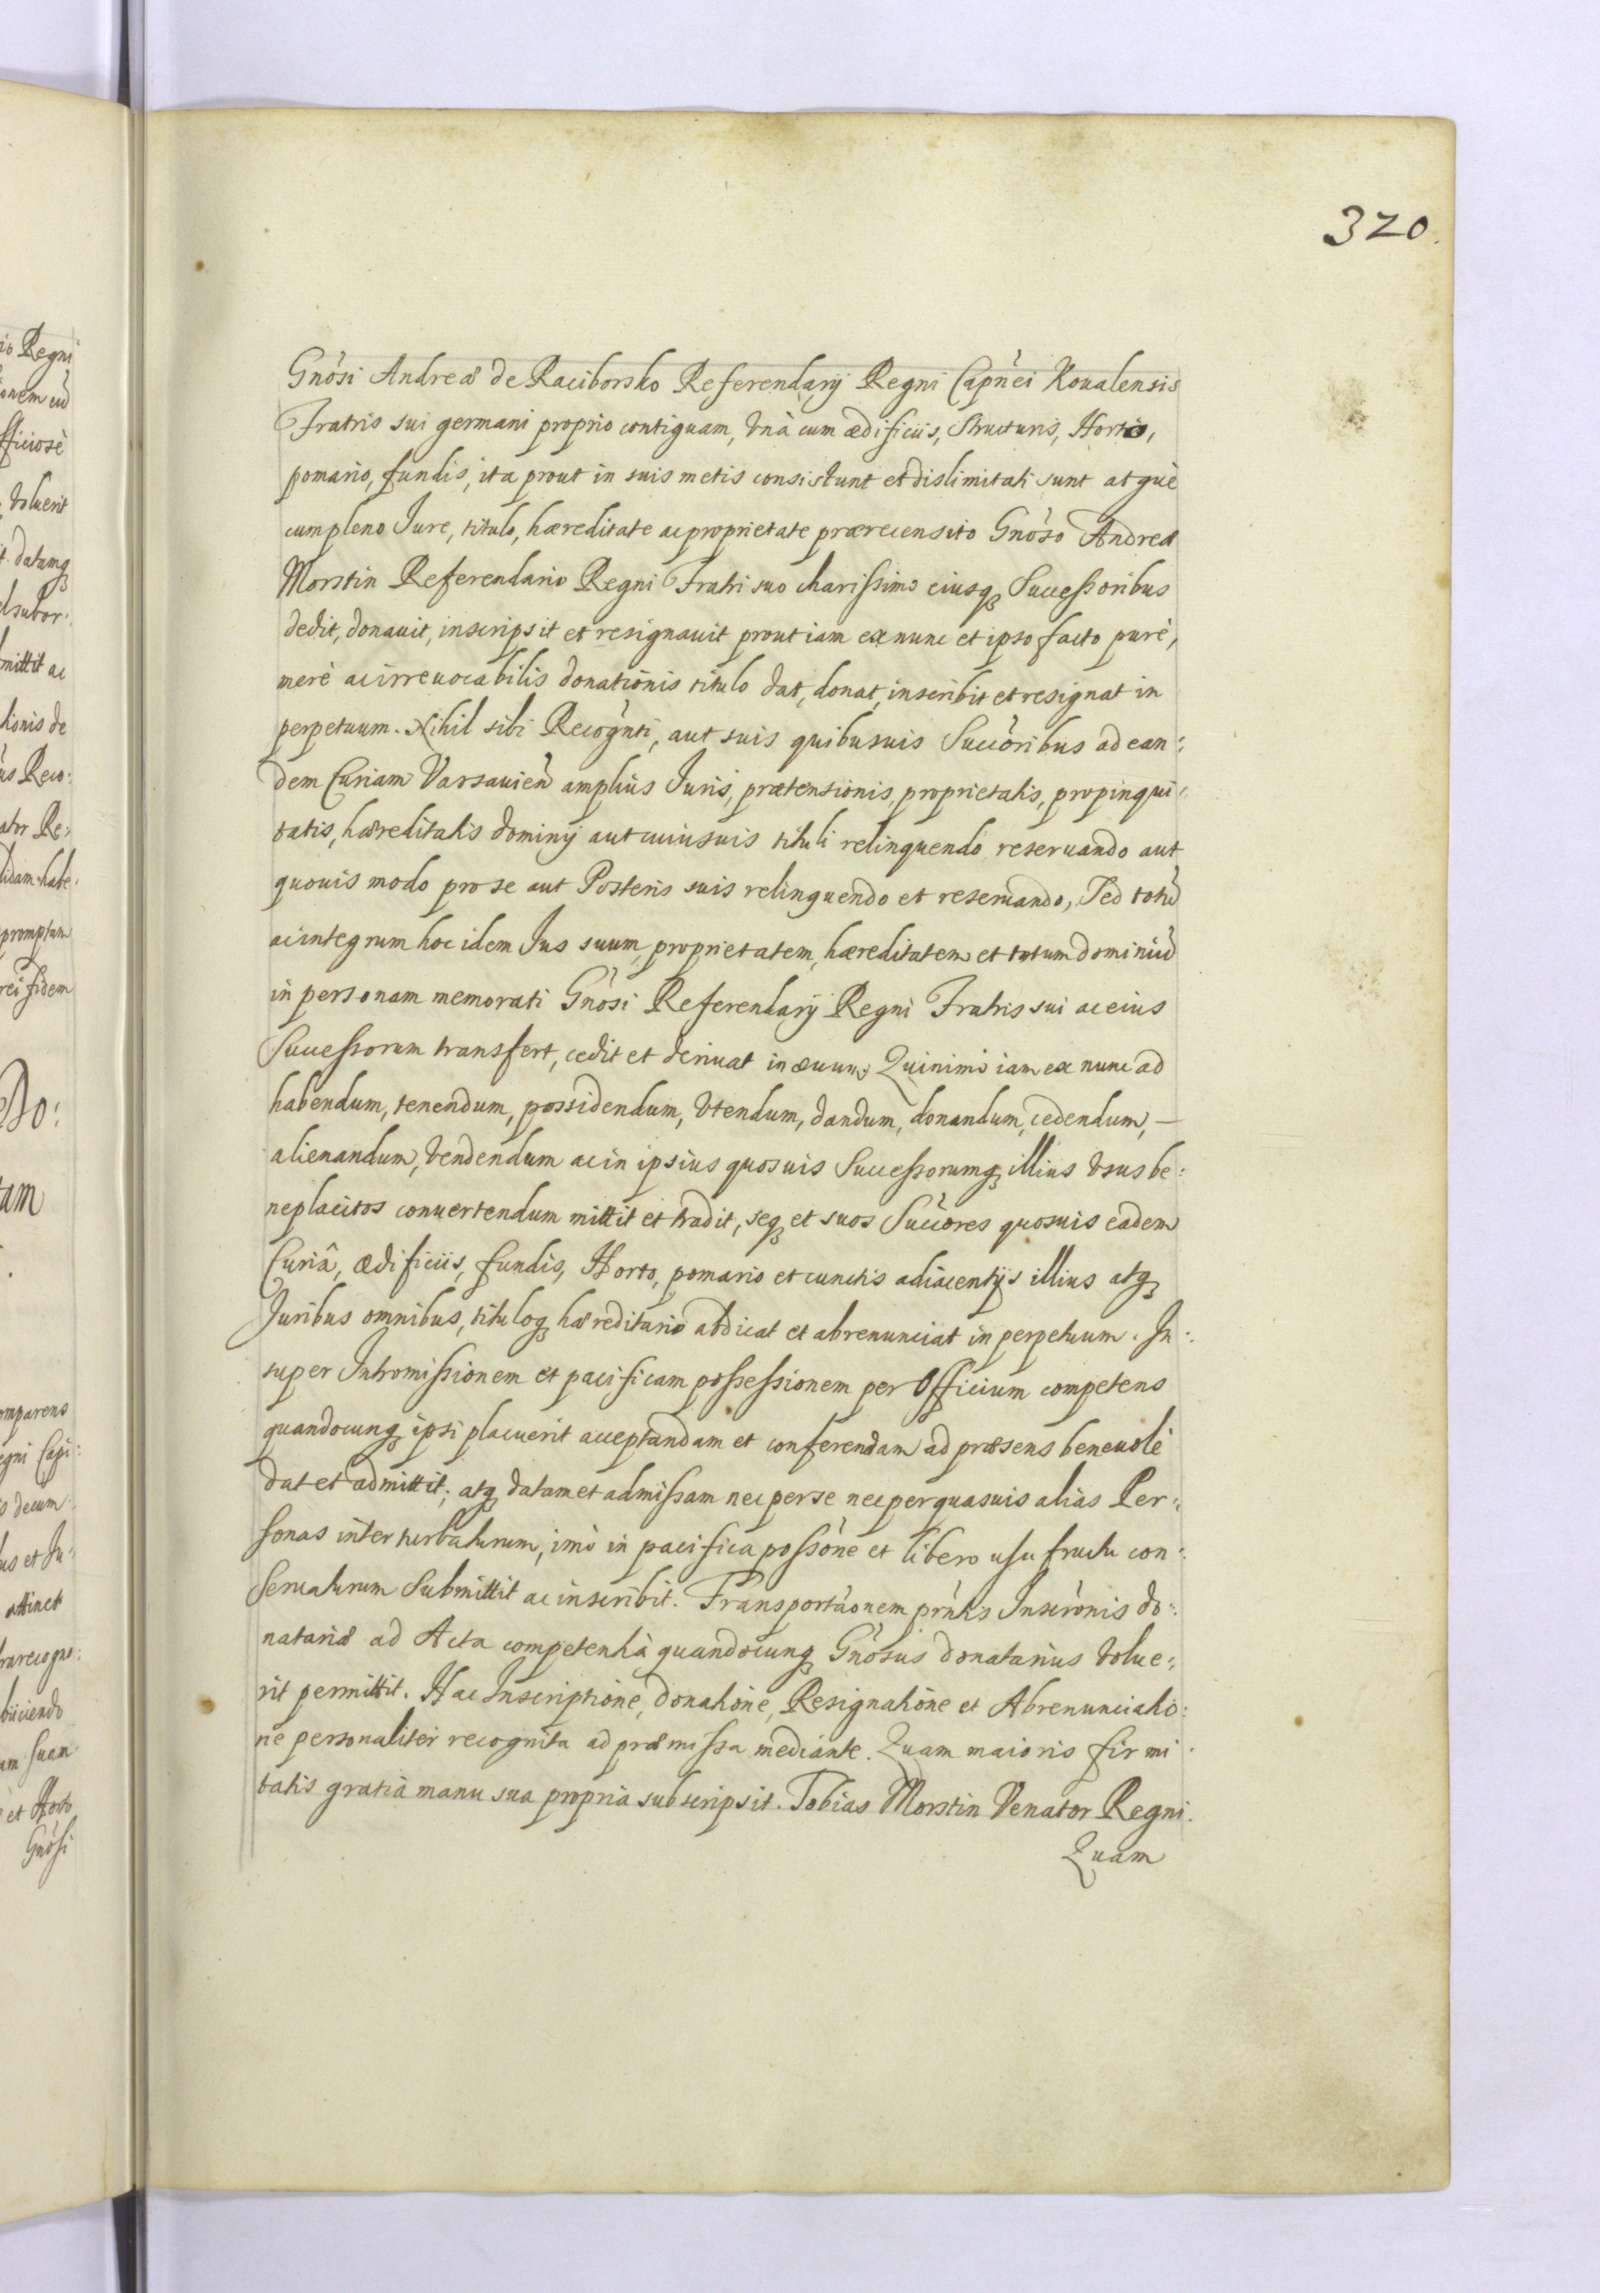 320.
Gnòsi Andreæ de Raciborsko Referendarÿ Regni Capǹei Koualensis
Fratris sui germani proprio contiguam, vnà cum ædificiis, Structuris, Horto,
pomario, fundis, ita prout in suis metis consistunt et dislimitati sunt atquè
cum pleno Jure, titulo, hæreditate ac proprietate prærecensito Gnòso Andreæ
Morstin Referendario Regni Fratri suo charissimo eiusq Successoribus
dedit, donauit, inscripsit et resignauit prout iam ex nunc et ipso facto purè,
merè ac irreuocabilis donationis titulo dat, donat, inscribit et resignat in
perpetuum. Nihil sibi Recogǹti, aut suis quibusuis Succòribus ad ean:
dem Curiam Varsauień amplius Juris, prætensionis, proprietatis, propinqui:
tatis, hæreditatis dominÿ aut cuiusuis tituli relinquendo reseruando aut
quouis modo pro se aut Posteris suis relinquendo et reseruando, Sed totũ
ac integrum hoc idem Jus suum, proprietatem, hæreditatem et totum dominiũ
in personam memorati Gnòsi Referendarÿ Regni Fratris sui ac eius
Successorum transfert, cedit et deriuat in æuum Quinimò iam ex nunc ad
habendum, tenendum, possidendum, vtendum, dandum, donandum, cedendum, —
alienandum, vendendum ac in ipsius quosuis Successorumq illius vsus be:
neplacitos conuertendum mittit et tradit, seq et suos Succòres quosuis eadem
Curiâ, ædificiis, fundis, Horto, pomario et cunctis adiacentÿs illius atq
Juribus omnibus, tituloq hæreditario abdicat et abrenunciat in perpetuum. In:
super Intromissionem et pacificam possessionem per Officium competens
quandocunq ipsi placuerit acceptandam et conferendam ad præsens beneuolè
dat et admittit; atq datam et admissam nec per se nec per quasuis alias Per:
sonas interturbaturum, imò in pacifica possòne et libero usu fructu con:
seruaturum Submittit ac inscribit. Transportàonem prǹtis Inscrònis do:
natariæ ad Acta competentia quandocunq Gnòsus donatarius volue:
rit permittit. Hac Inscriptione, donatione, Resignatione et Abrenunciatio:
ne personaliter recognita ad præmissa mediante. Quam maioris firmi
tatis gratia manu sua propria subscripsit. Tobias Morstin Venator Regni.
Quam